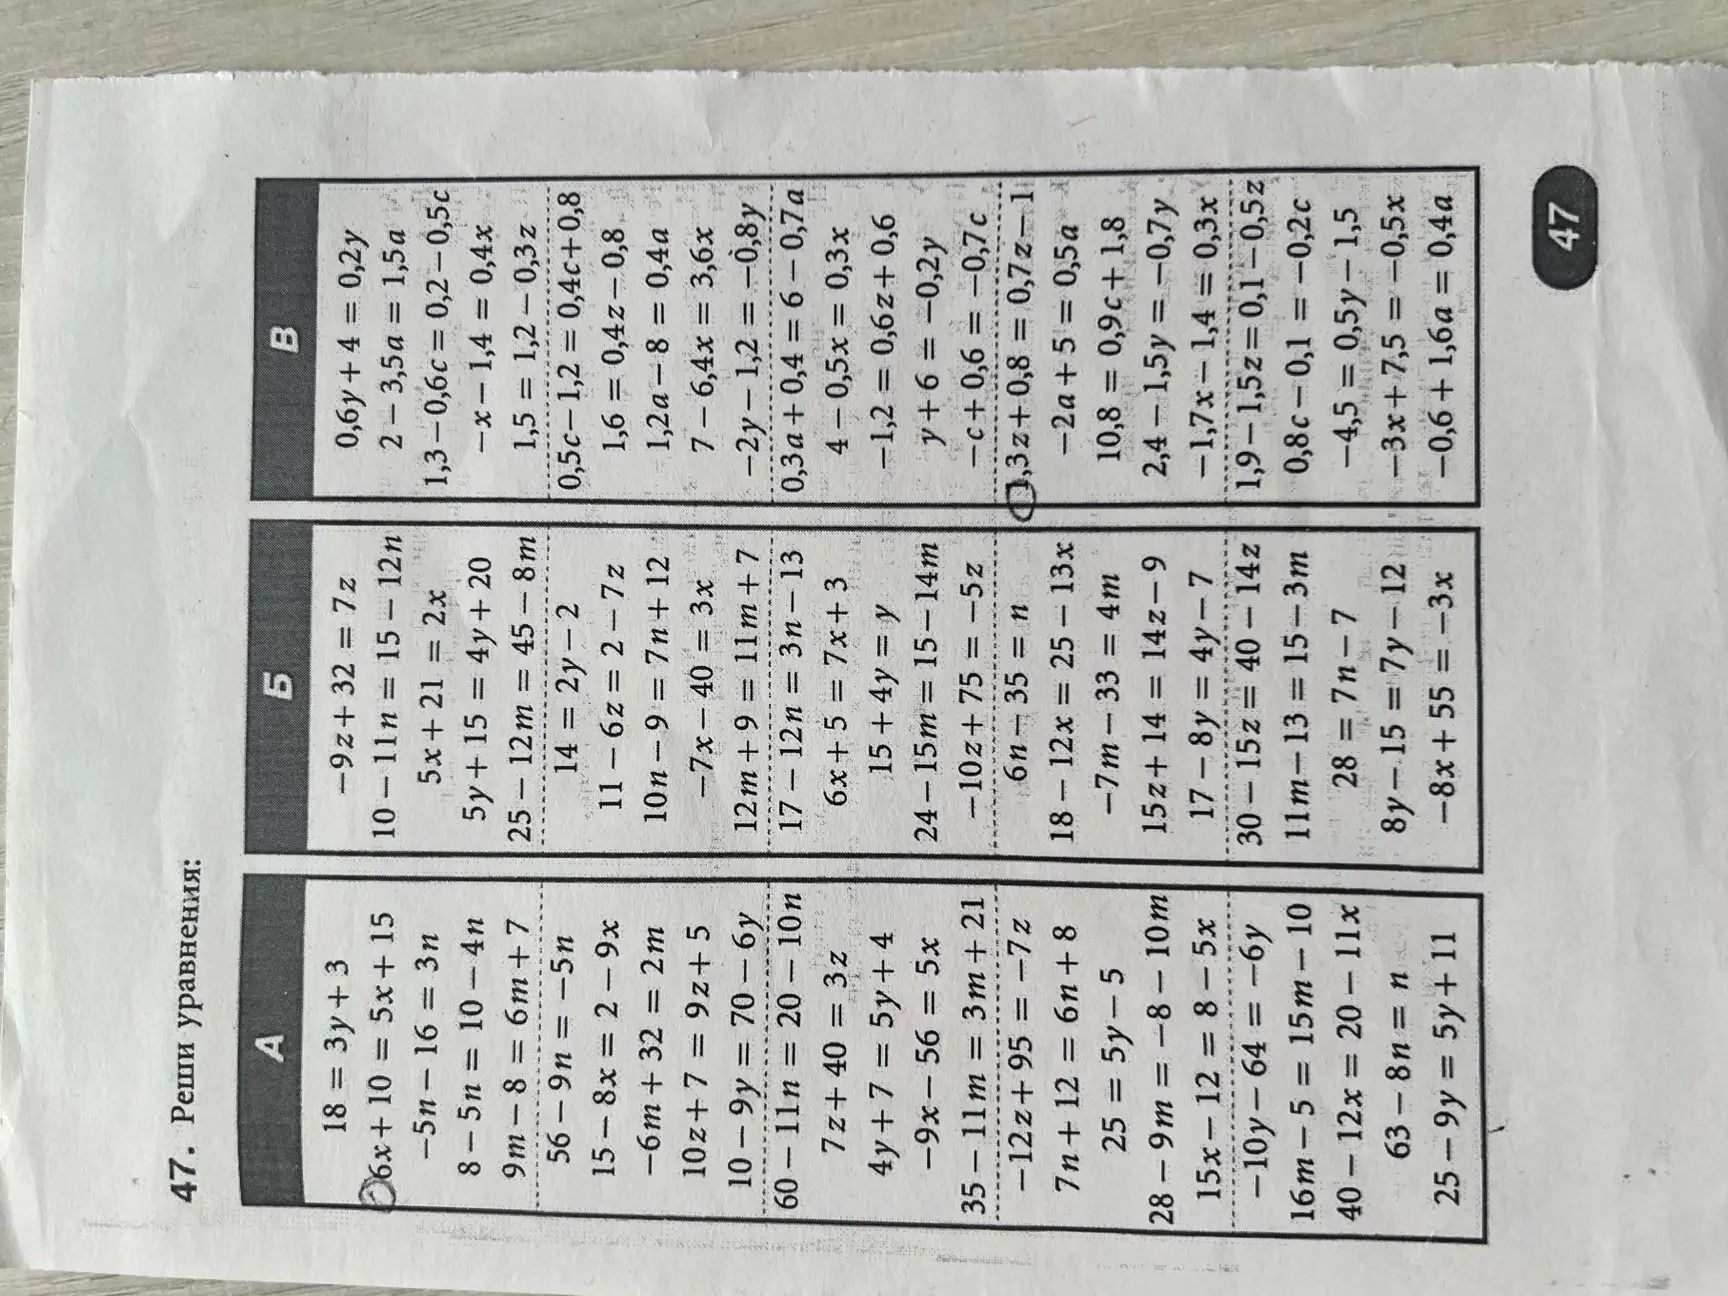 47. Реши уравнения:
А
18 = 3y + 3
6x + 10 = 5x + 15
−5n − 16 = 3n
8 − 5n = 10 − 4n
9m − 8 = 6m + 7
56 − 9n = −5n
15 − 8x = 2 − 9x
−6m + 32 = 2m
10z + 7 = 9z + 5
10 − 9y = 70 − 6y
60 − 11n = 20 − 10n
7z + 40 = 3z
4y + 7 = 5y + 4
−9x − 56 = 5x
35 − 11m = 3m + 21
−12z + 95 = −7z
7n + 12 = 6n + 8
25 = 5y − 5
28 − 9m = −8 − 10m
15x − 12 = 8 − 5x
−10y − 64 = −6y
16m − 5 = 15m − 10
40 − 12x = 20 − 11x
63 − 8n = n
25 − 9y = 5y + 11
Б
−9z + 32 = 7z
10 − 11n = 15 − 12n
5x + 21 = 2x
5y + 15 = 4y + 20
25 − 12m = 45 − 8m
14 = 2y − 2
11 − 6z = 2 − 7z
10n − 9 = 7n + 12
−7x − 40 = 3x
12m + 9 = 11m + 7
17 − 12n = 3n − 13
6x + 5 = 7x + 3
15 + 4y = y
24 − 15m = 15 − 14m
−10z + 75 = −5z
6n − 35 = n
18 − 12x = 25 − 13x
−7m − 33 = 4m
15z + 14 = 14z − 9
17 − 8y = 4y − 7
30 − 15z = 40 − 14z
11m − 13 = 15 − 3m
28 = 7n − 7
8y − 15 = 7y − 12
−8x + 55 = −3x
В
0,6y + 4 = 0,2y
2 − 3,5a = 1,5a
1,3 − 0,6c = 0,2 − 0,5c
−x − 1,4 = 0,4x
1,5 = 1,2 − 0,3z
0,5c − 1,2 = 0,4c + 0,8
1,6 = 0,4z − 0,8
1,2a − 8 = 0,4a
7 − 6,4x = 3,6x
−2y − 1,2 = −0,8y
0,3a + 0,4 = 6 − 0,7a
4 − 0,5x = 0,3x
−1,2 = 0,6z + 0,6
y + 6 = −0,2y
−c + 0,6 = −0,7c
1,3z + 0,8 = 0,7z − 1
−2a + 5 = 0,5a
10,8 = 0,9c + 1,8
2,4 − 1,5y = −0,7y
−1,7x − 1,4 = 0,3x
1,9 − 1,5z = 0,1 − 0,5z
0,8c − 0,1 = −0,2c
−4,5 = 0,5y − 1,5
−3x + 7,5 = −0,5x
−0,6 + 1,6a = 0,4a
47